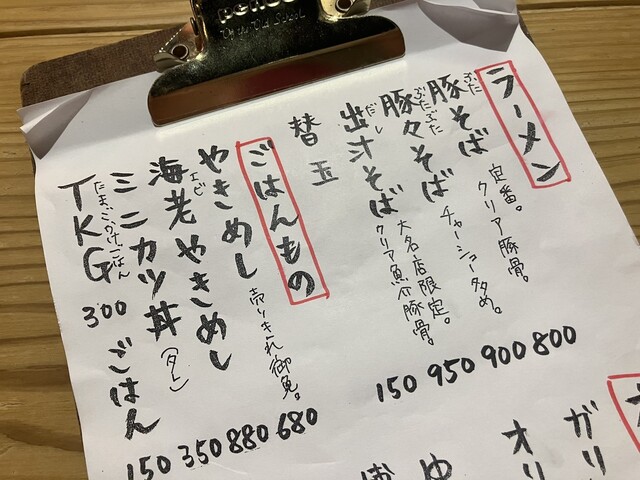 PENCO
ラーメン
豚そば
ぶた
定番。
クリア豚骨。
800
豚々そば
ぶたぶた
チャーシュー多め。
900
出汁そば
だし
大名店限定。
クリア魚介豚骨。
950
替玉
150
ごはんもの
やきめし
売りきれ御免。
680
海老やきめし
エビ
880
ミニカツ丼
(タレ)
350
TKG
たまごかけごはん
300
ごはん
150
ガリ
オリ
ゆ